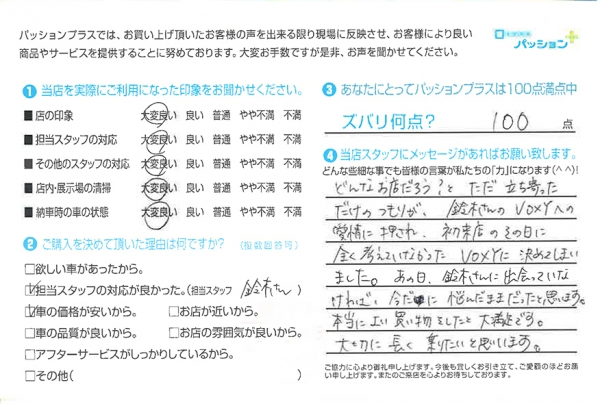 パッションプラスでは、お買い上げ頂いたお客様の声を出来る限り現場に反映させ、お客様により良い
商品やサービスを提供することに努めております。大変お手数ですが是非、お声を聞かせてください。
パッション
1 当店を実際にご利用になった印象をお聞かせください。
■店の印象 大変良い 良い 普通 やや不満 不満
■担当スタッフの対応 大変良い 良い 普通 やや不満 不満
■その他のスタッフの対応 大変良い 良い 普通 やや不満 不満
■店内・展示場の清掃 大変良い 良い 普通 やや不満 不満
■納車時の車の状態 大変良い 良い 普通 やや不満 不満
2 ご購入を決めて頂いた理由は何ですか? (複数回答可)
□欲しい車があったから。
☑担当スタッフの対応が良かった。(担当スタッフ 鈴木さん )
☑車の価格が安いから。 □お店が近いから。
□車の品質が良いから。 □お店の雰囲気が良いから。
□アフターサービスがしっかりしているから。
□その他( )
3 あなたにとってパッションプラスは100点満点中
ズバリ何点? 100 点
4 当店スタッフにメッセージがあればお願い致します。
どんな些細な事でも皆様の言葉が私たちの「力」になります(^^)!
どんなお店だろう?と ただ 立ち寄った
だけのつもりが、鈴木さんの VOXYへの
愛情に 押され、初来店の その日に
全く考えていなかった VOXYに 決めてしまい
ました。あの日、鈴木さんに出会っていな
ければ、今だに 悩んだままだったと思います。
本当に良い 買い物をしたと 大満足です。
大切に 長く 乗りたいと思います。
ご協力に心より御礼申し上げます。今後も宜しくお引き立て、ご愛顧のほどお願い申し上げます。またのご来店を心よりお待ちしております。